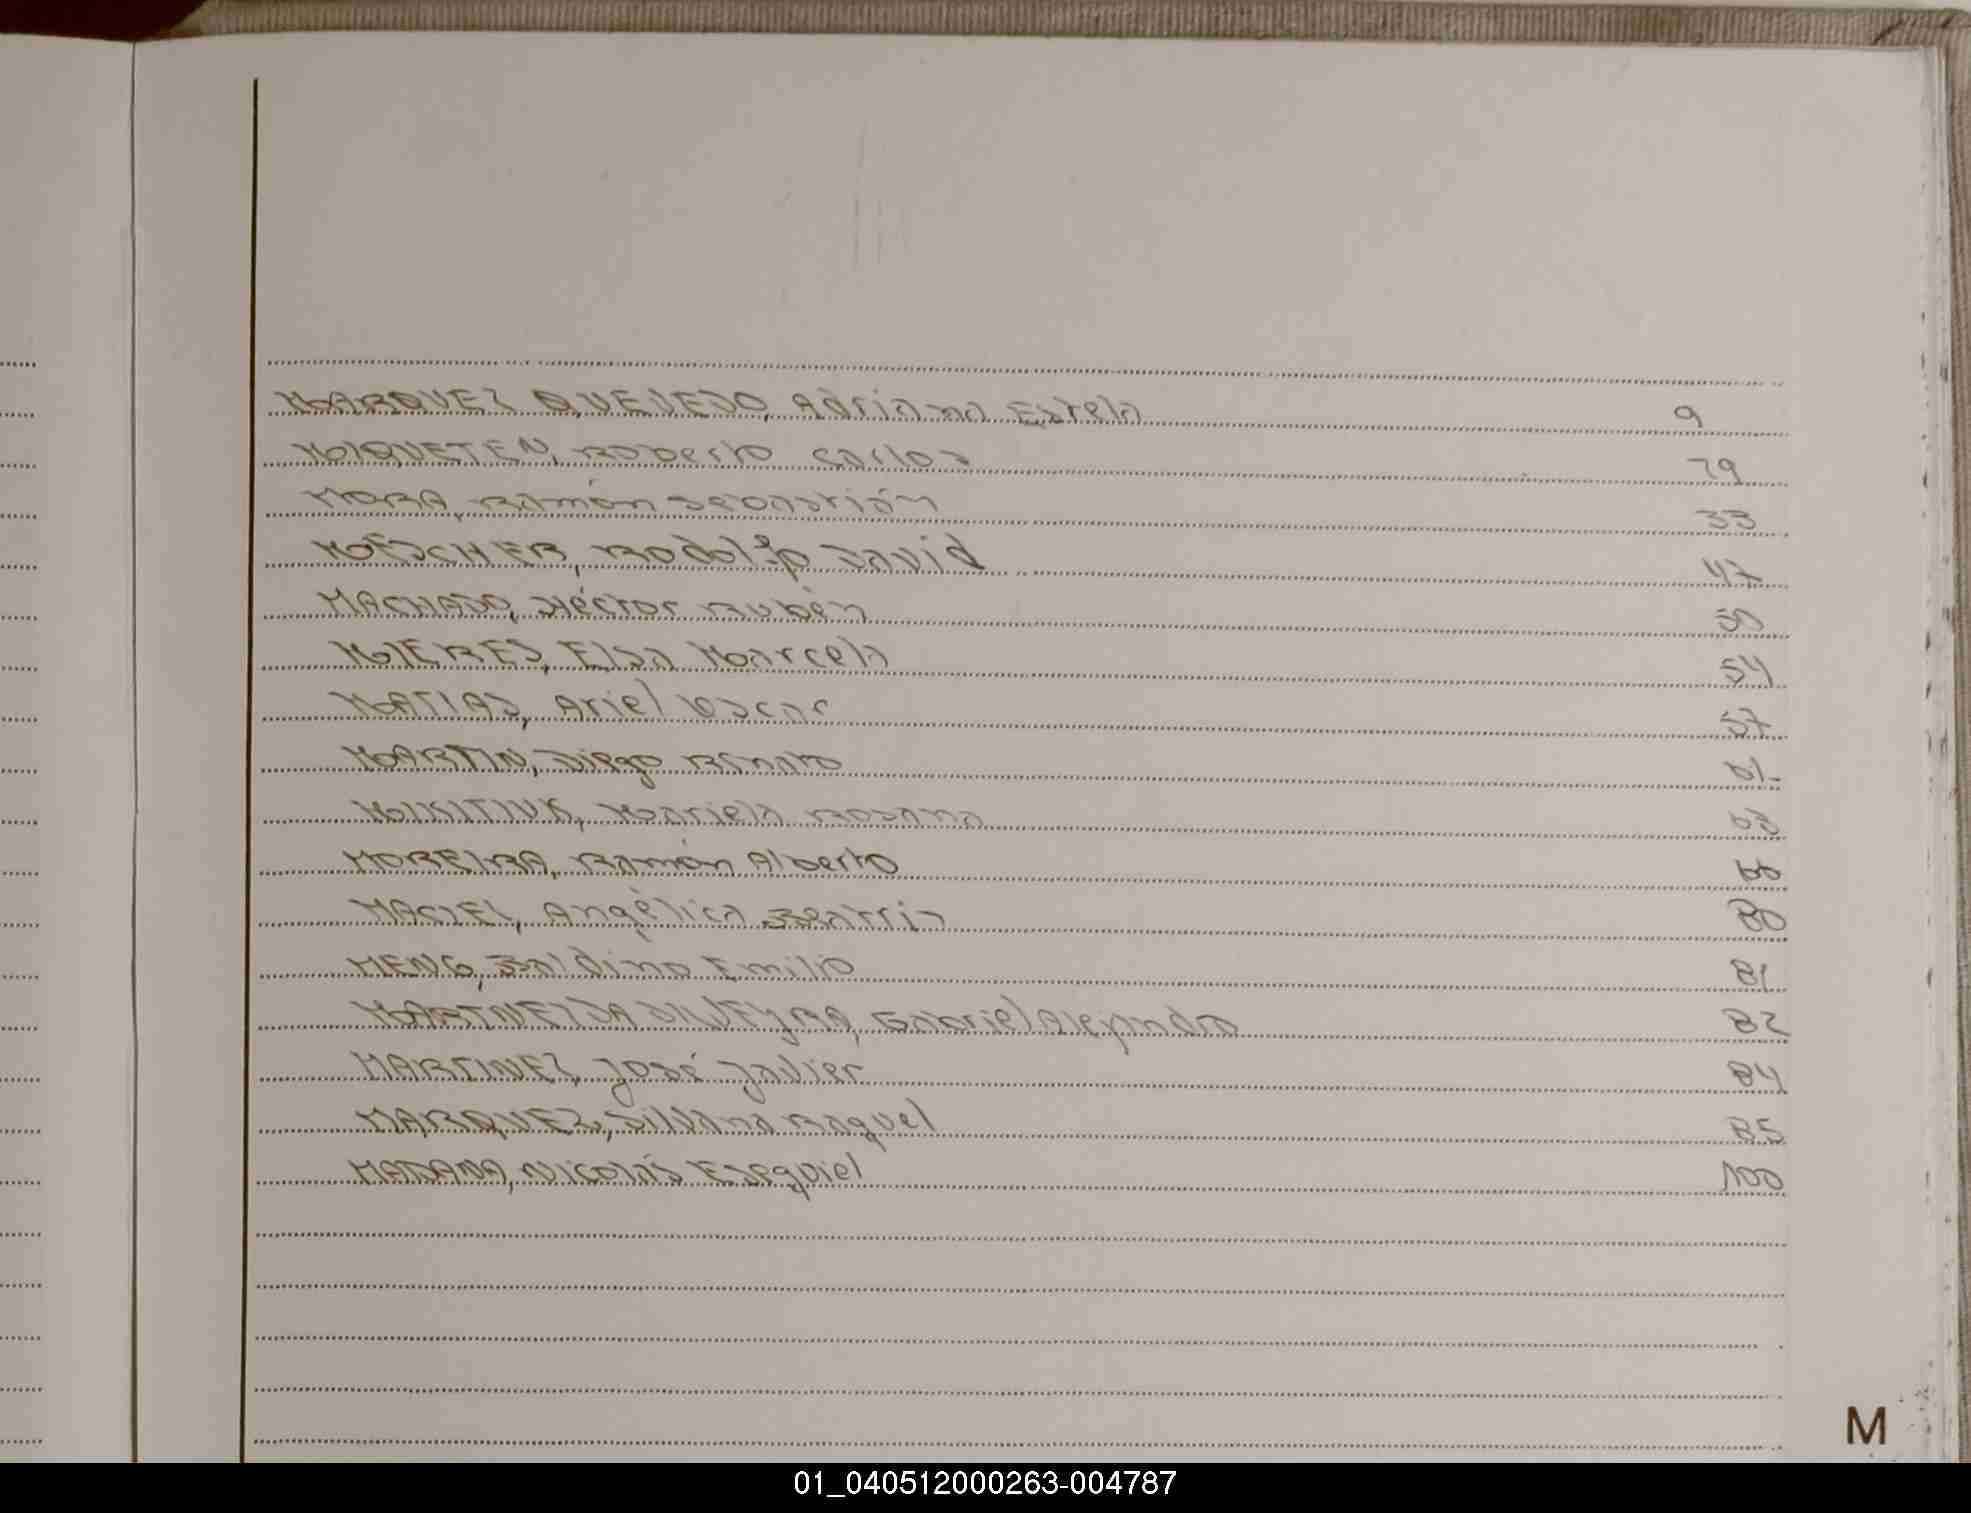 MARQUEZ QUEVEDO, Adriana Estela 9
MIQUETEN, Roberto Carlos 29
MORA, Ramón Sebastián 33
MOESCHER, Rodolfo David 47
MACHADO, Héctor Rubén 50
MIERES, Elsa Marcela 54
MATIAS, Ariel Oscar 57
MARTIN, Diego Renato 61
MIKITIUK, Mariela Rosana 63
MOREIRA, Ramón Alberto 66
MACIEL, Angélica Beatriz 80
MENG, Baldino Emilio 81
MARTINEZ DA SILVEYRA, Gabriel Alejandro 82
MARTINEZ, José Javier 84
MARQUEZ, Silvana Raquel 85
MADANA, Nicolás Esequiel 100
M
01_040512000263-004787